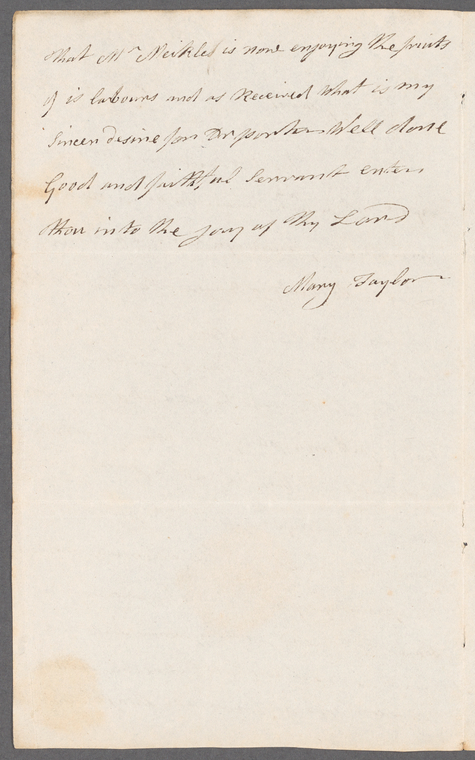 that Mr Meikles is now enjoying the fruits
of is labours and as Received what is my
Sinceer desire for Dr porter Well done
Good and faithful Servant enter
thou into the joy of thy Lord
Mary Taylor